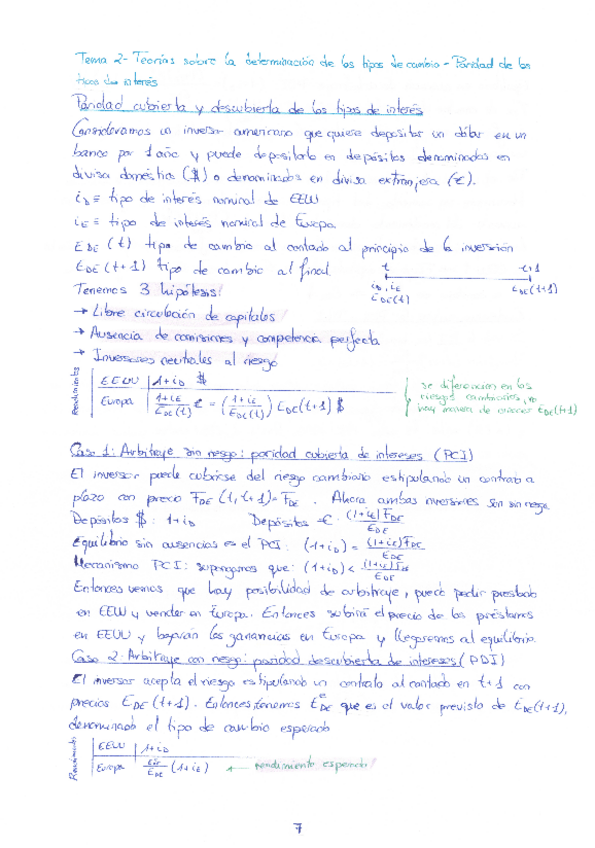 Tema 2- Teorías sobre la determinación de los tipos de cambio - Paridad de los
tipos de interés
Paridad cubierta y descubierta de los tipos de interés
Consideramos un inversor americano que quiere depositar un dólar en un
banco por 1 año y puede depositarlo en depósitos denominados en
divisa doméstica ($) o denominados en divisa extranjera (€).
i_D ≡ tipo de interés nominal de EEUU
i_E ≡ tipo de interés nominal de Europa
E_DE (t) tipo de cambio al contado al principio de la inversión
E_DE (t+1) tipo de cambio al final
t t+1
i_D, i_E
E_DE(t) E_DE(t+1)
Tenemos 3 hipótesis:
→ Libre circulación de capitales
→ Ausencia de comisiones y competencia perfecta
→ Inversores neutrales al riesgo
Rendimientos
EEUU 1+i_D $
Europa (1+i_E)/E_DE(t) € = ((1+i_E)/E_DE(t)) E_DE(t+1) $
se diferencian en los
riesgos cambiarios, no
hay manera de conocer E_DE(t+1)
Caso 1: Arbitraje sin riesgo: paridad cubierta de intereses (PCI)
El inversor puede cubrirse del riesgo cambiario estipulando un contrato a
plazo con precio F_DE (t, t+1) = F_DE. Ahora ambas inversiones son sin riesgo
Depósitos $: 1+i_D Depósitos €: (1+i_E)F_DE/E_DE
Equilibrio sin ausencias es el PCI: (1+i_D) = (1+i_E)F_DE/E_DE
Mecanismo PCI: supongamos que: (1+i_D) < (1+i_E)F_DE/E_DE
Entonces vemos que hay posibilidad de arbitraje, puedo pedir prestado
en EEUU y vender en Europa. Entonces subirá el precio de los préstamos
en EEUU y bajarán las ganancias en Europa y llegaremos al equilibrio.
Caso 2: Arbitraje con riesgo: paridad descubierta de intereses (PDI)
El inversor acepta el riesgo estipulando un contrato al contado en t+1 con
precios E_DE (t+1). Entonces, tenemos E^e_DE que es el valor previsto de E_DE(t+1),
denominado el tipo de cambio esperado
Rendimientos
EEUU 1+i_D
Europa E^e_DE/E_DE (1+i_E) ← rendimiento esperado
7